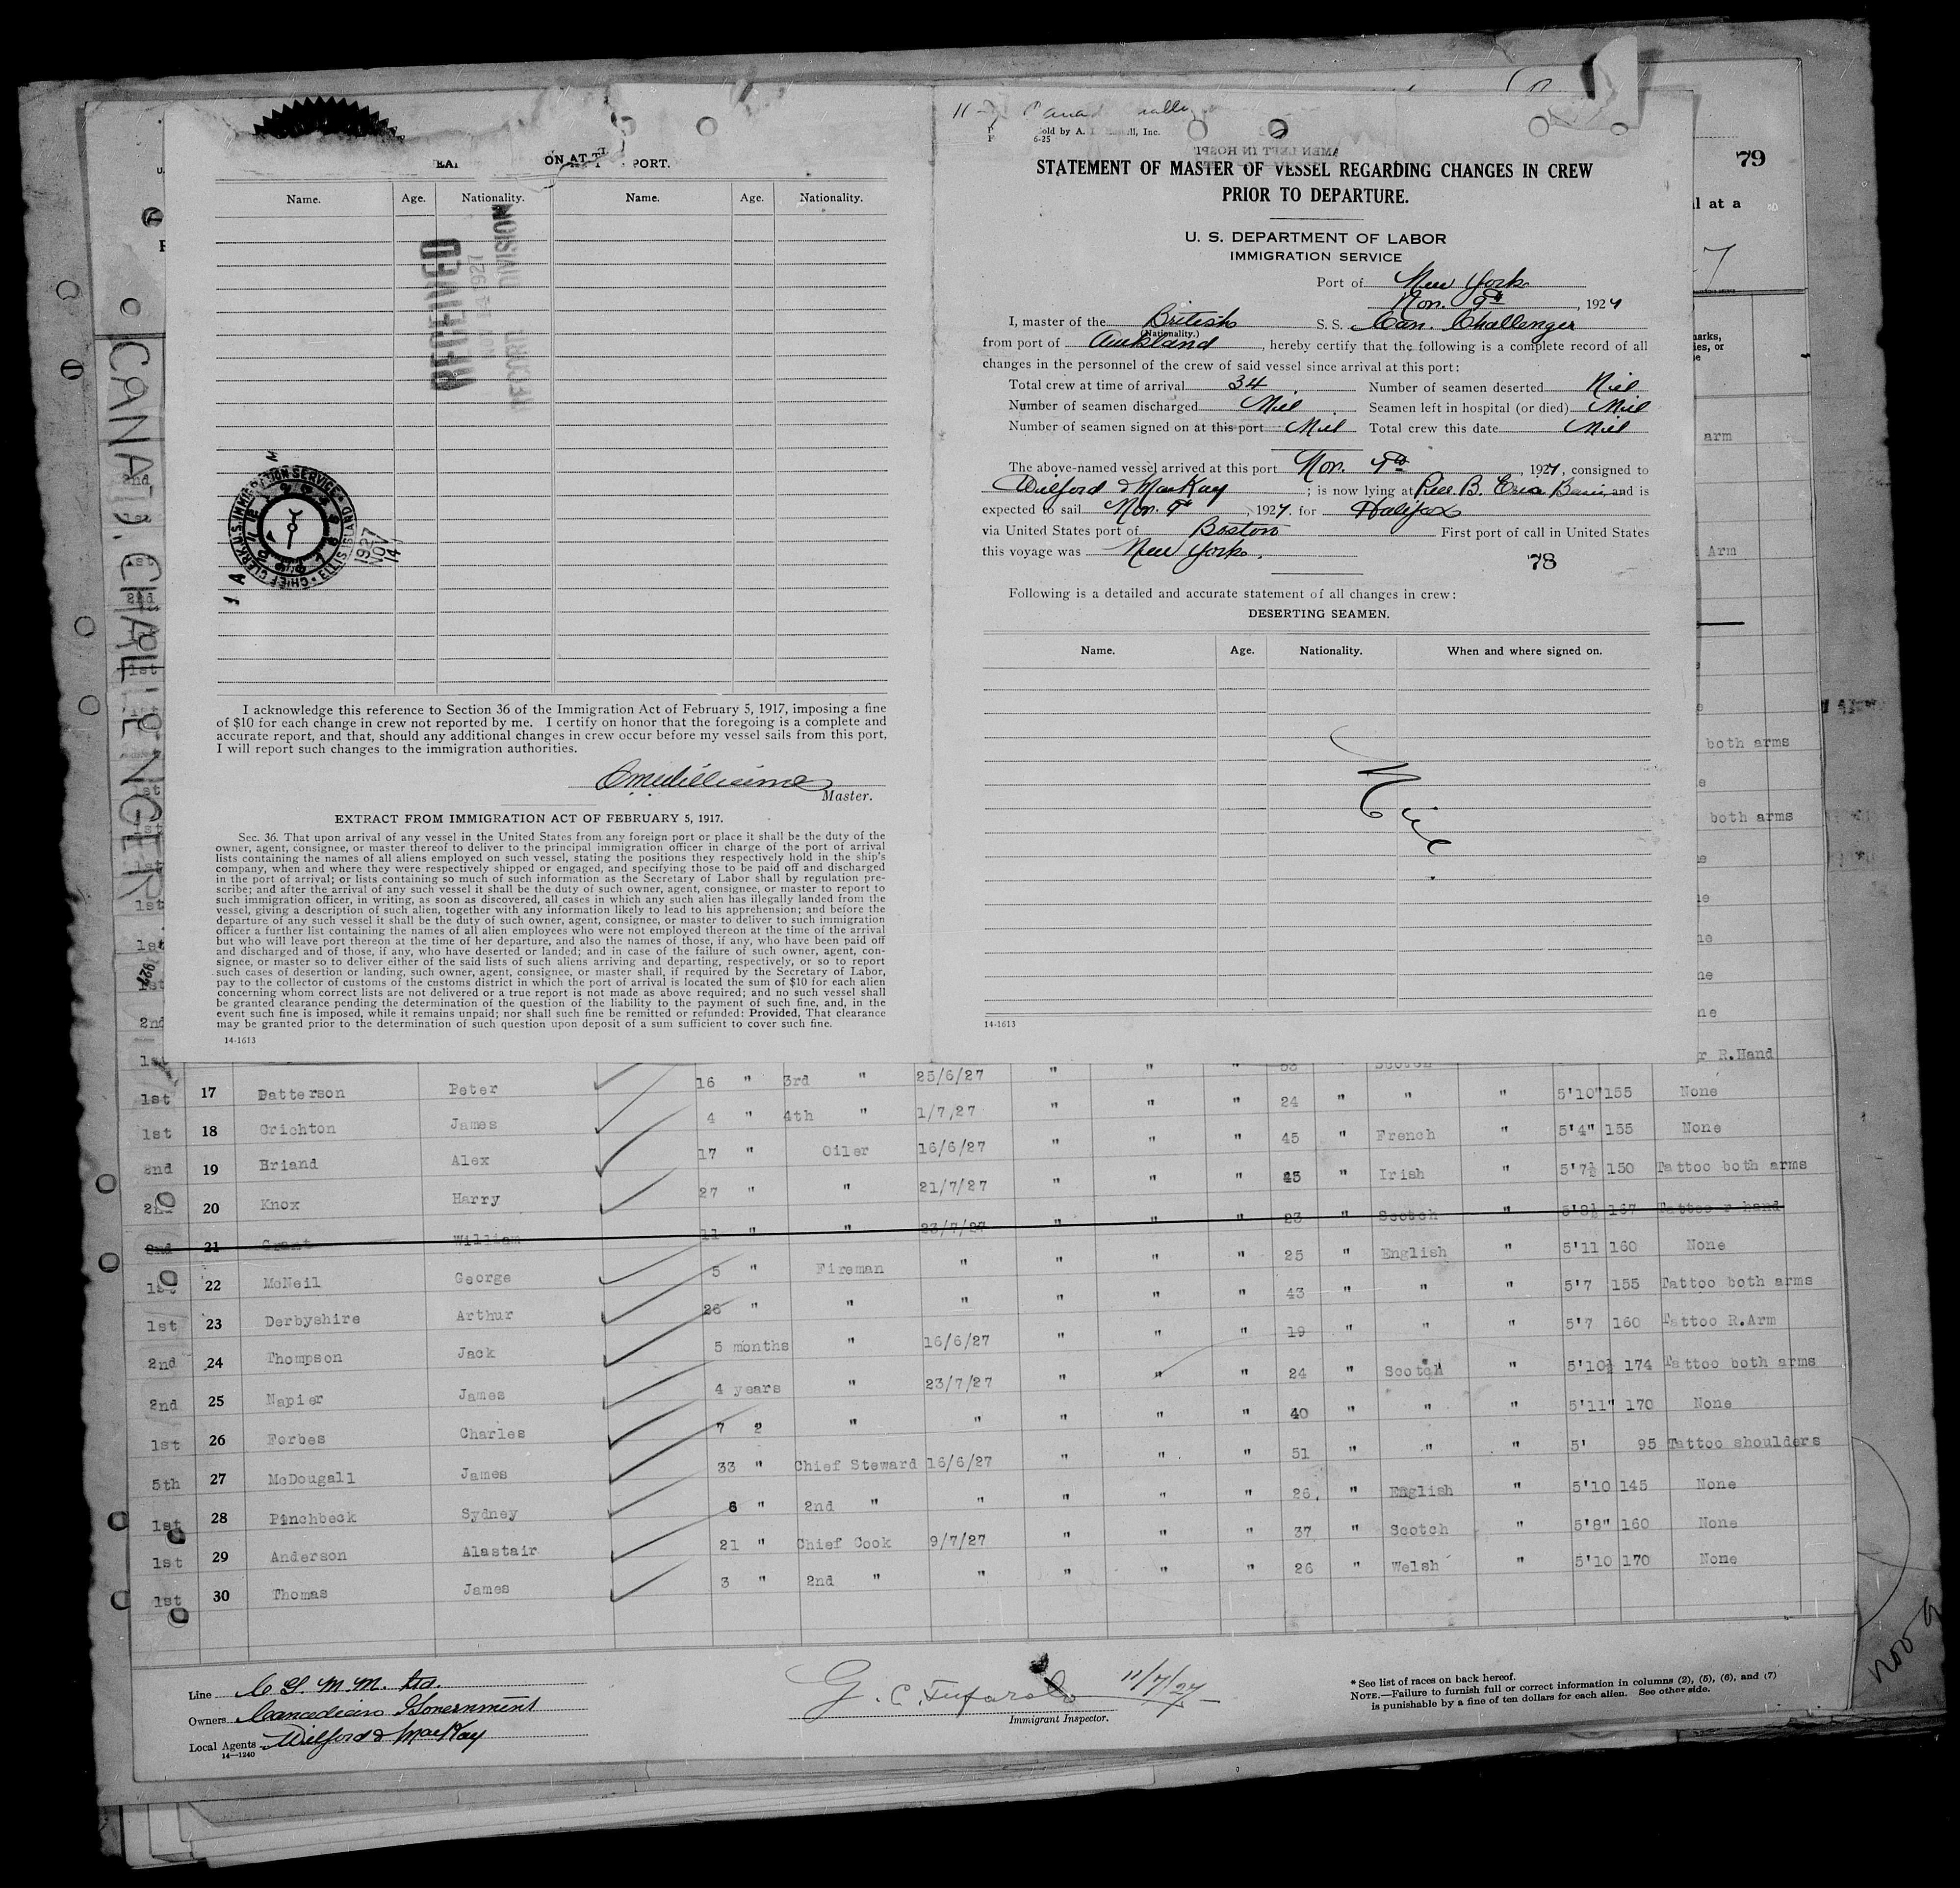 ON AT PORT.
Name. Age. Nationality. Name. Age. Nationality.
RECEIVED
NOV 14 1927
RECORD DIVISION
CHIEF CLERK, U.S. IMMIGRATION SERVICE ELLIS ISLAND
1927
NOV
14
I acknowledge this reference to Section 36 of the Immigration Act of February 5, 1917, imposing a fine
of $10 for each change in crew not reported by me. I certify on honor that the foregoing is a complete and
accurate report, and that, should any additional changes in crew occur before my vessel sails from this port,
I will report such changes to the immigration authorities.
Master.
EXTRACT FROM IMMIGRATION ACT OF FEBRUARY 5, 1917.
Sec. 36. That upon arrival of any vessel in the United States from any foreign port or place it shall be the duty of the
owner, agent, consignee, or master thereof to deliver to the principal immigration officer in charge of the port of arrival
lists containing the names of all aliens employed on such vessel, stating the positions they respectively hold in the ship's
company, when and where they were respectively shipped or engaged, and specifying those to be paid off and discharged
in the port of arrival; or lists containing so much of such information as the Secretary of Labor shall by regulation pre-
scribe; and after the arrival of any such vessel it shall be the duty of such owner, agent, consignee, or master to report to
such immigration officer, in writing, as soon as discovered, all cases in which any such alien has illegally landed from the
vessel, giving a description of such alien, together with any information likely to lead to his apprehension; and before the
departure of any such vessel it shall be the duty of such owner, agent, consignee, or master to deliver to such immigration
officer a further list containing the names of all alien employees who were not employed thereon at the time of the arrival
but who will leave port thereon at the time of her departure, and also the names of those, if any, who have been paid off
and discharged and of those, if any, who have deserted or landed; and in case of the failure of such owner, agent, con-
signee, or master so to deliver either of the said lists of such aliens arriving and departing, respectively, or so to report
such cases of desertion or landing, such owner, agent, consignee, or master shall, if required by the Secretary of Labor,
pay to the collector of customs of the customs district in which the port of arrival is located the sum of $10 for each alien
concerning whom correct lists are not delivered or a true report is not made as above required; and no such vessel shall
be granted clearance pending the determination of the question of the liability to the payment of such fine, and, in the
event such fine is imposed, while it remains unpaid; nor shall such fine be remitted or refunded: Provided, That clearance
may be granted prior to the determination of such question upon deposit of a sum sufficient to cover such fine.
14-1613
old by A. ll, Inc.
6-25
STATEMENT OF MASTER OF VESSEL REGARDING CHANGES IN CREW
PRIOR TO DEPARTURE.
U. S. DEPARTMENT OF LABOR
IMMIGRATION SERVICE
Port of New York
Nov. 9th, 1927
I, master of the British S. S. Can. Challenger
(Nationality.)
from port of Auckland, hereby certify that the following is a complete record of all
changes in the personnel of the crew of said vessel since arrival at this port:
Total crew at time of arrival 34 Number of seamen deserted Niel
Number of seamen discharged Niel Seamen left in hospital (or died) Niel
Number of seamen signed on at this port Niel Total crew this date Niel
The above-named vessel arrived at this port Nov. 7th, 1927, consigned to
Wilford & MacKay; is now lying at Pier B. Erie Basin, and is
expected to sail Nov. 9th, 1927. for Halifax
via United States port of Boston First port of call in United States
this voyage was New York.
78
Following is a detailed and accurate statement of all changes in crew:
DESERTING SEAMEN.
Name. Age. Nationality. When and where signed on.
Niel.
14-1613
79
l at a
7
arks,
ies, or
arm
Arm
both arms
both arms
r R.Hand
CANAD. CHALLENGER
1st 17 Patterson Peter 16 " 3rd " 25/6/27 " " " 24 " " " 5'10" 155 None
1st 18 Crichton James 4 " 4th " 1/7/27 " " " 45 " French " 5'4" 155 None
2nd 19 Briand Alex 17 " Oiler 16/6/27 " " " 45 " Irish " 5'7½ 150 Tattoo both arms
2nd 20 Knox Harry 27 " " 21/7/27 " " " 23 " Scotch " 5'8½ 167 Tattoo r hand
2nd 21 Grant William 11 " " 23/7/27 " " " 25 " English " 5'11 160 None
1st 22 McNeil George 5 " Fireman " " " " 43 " " " 5'7 155 Tattoo both arms
1st 23 Derbyshire Arthur 26 " " " " " " 19 " " " 5'7 160 Tattoo R.Arm
2nd 24 Thompson Jack 5 months " 16/6/27 " " " 24 " Scotch " 5'10½ 174 Tattoo both arms
2nd 25 Napier James 4 years " 23/7/27 " " " 40 " " " 5'11" 170 None
1st 26 Forbes Charles 7 2 " " " " " 51 " " " 5' 95 Tattoo shoulders
5th 27 McDougall James 33 " Chief Steward 16/6/27 " " " 26. " English " 5'10 145 None
1st 28 Pinchbeck Sydney 6 " 2nd " " " " " 37 " Scotch " 5'8" 160 None
1st 29 Anderson Alastair 21 " Chief Cook 9/7/27 " " " 26 " Welsh " 5'10 170 None
1st 30 Thomas James 3 " 2nd " " " " "
Line C G M M. Ltd.
Owners Canadian Government
Local Agents Wilford & MacKay
14—1240
G. C. Tufarolo 11/7/27
Immigrant Inspector.
* See list of races on back hereof.
NOTE.—Failure to furnish full or correct information in columns (2), (5), (6), and (7)
is punishable by a fine of ten dollars for each alien. See other side.
Nov 9